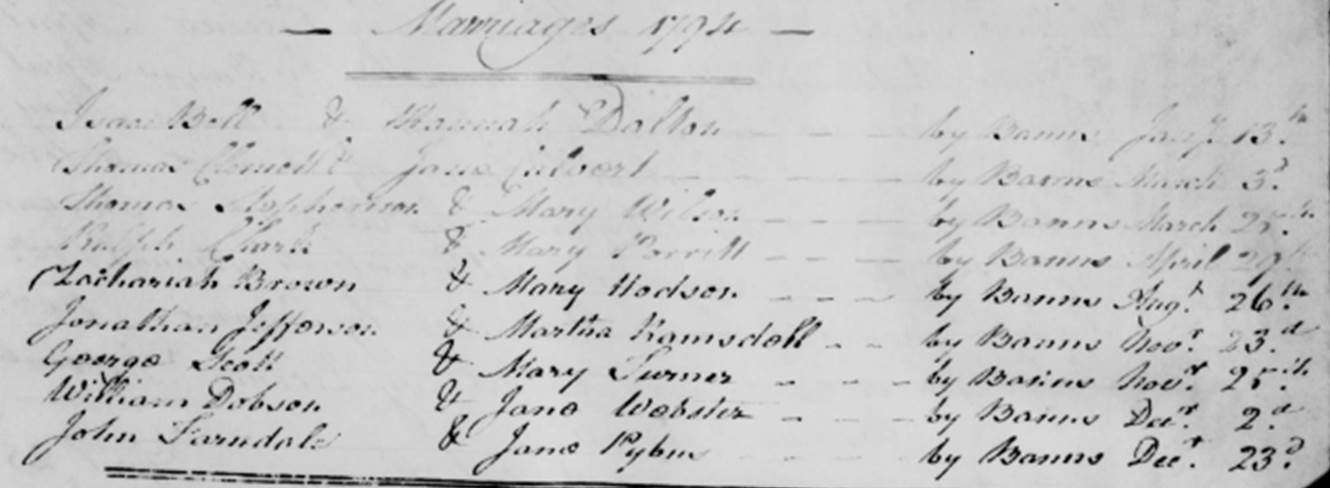 — Marriages 1794 —
Isaac Bell & Hannah Dalton by Banns Jany. 13th
Thomas Clemett & Jane Calvert by Banns March 3d
Thomas Stephenson & Mary Wilson by Banns March 25th
Ralph Clark & Mary Porritt by Banns April 29th
Zachariah Brown & Mary Hodson by Banns Augt. 26th
Jonathan Jefferson & Martha Ramsdall by Banns Novr. 23d
George Scott & Mary Turner by Banns Novr. 25th
William Dobson & Jane Webster by Banns Decr. 2d
John Farndale & Jane Pybus by Banns Decr. 23d